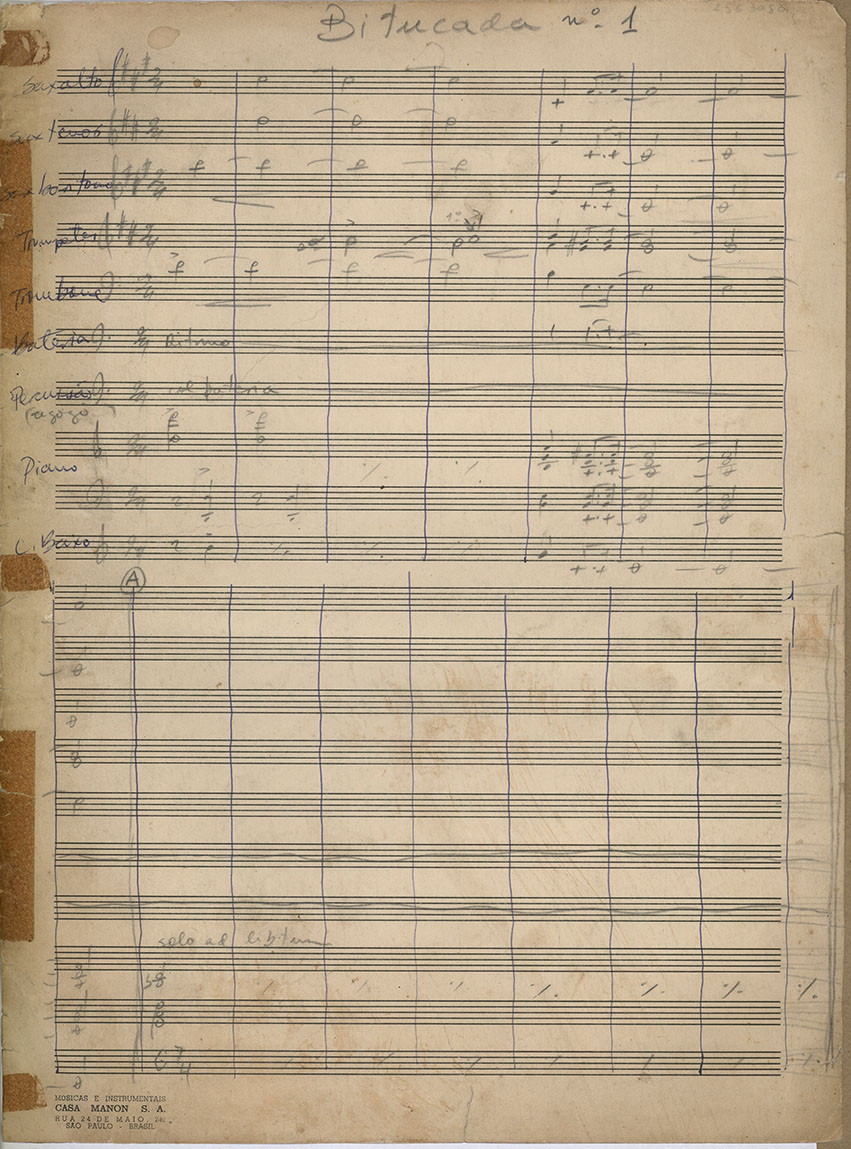 Bitucada nº 1
sax alto
sax tenor
sax baritono
Trumpete
Trombone
Bateria
Ritmo
Percussão
(agogo
Piano
C. Baixo
A
solo ad libitum
MUSICAS E INSTRUMENTAIS
CASA MANON S. A.
RUA 24 DE MAIO, 242
SÃO PAULO - BRASIL